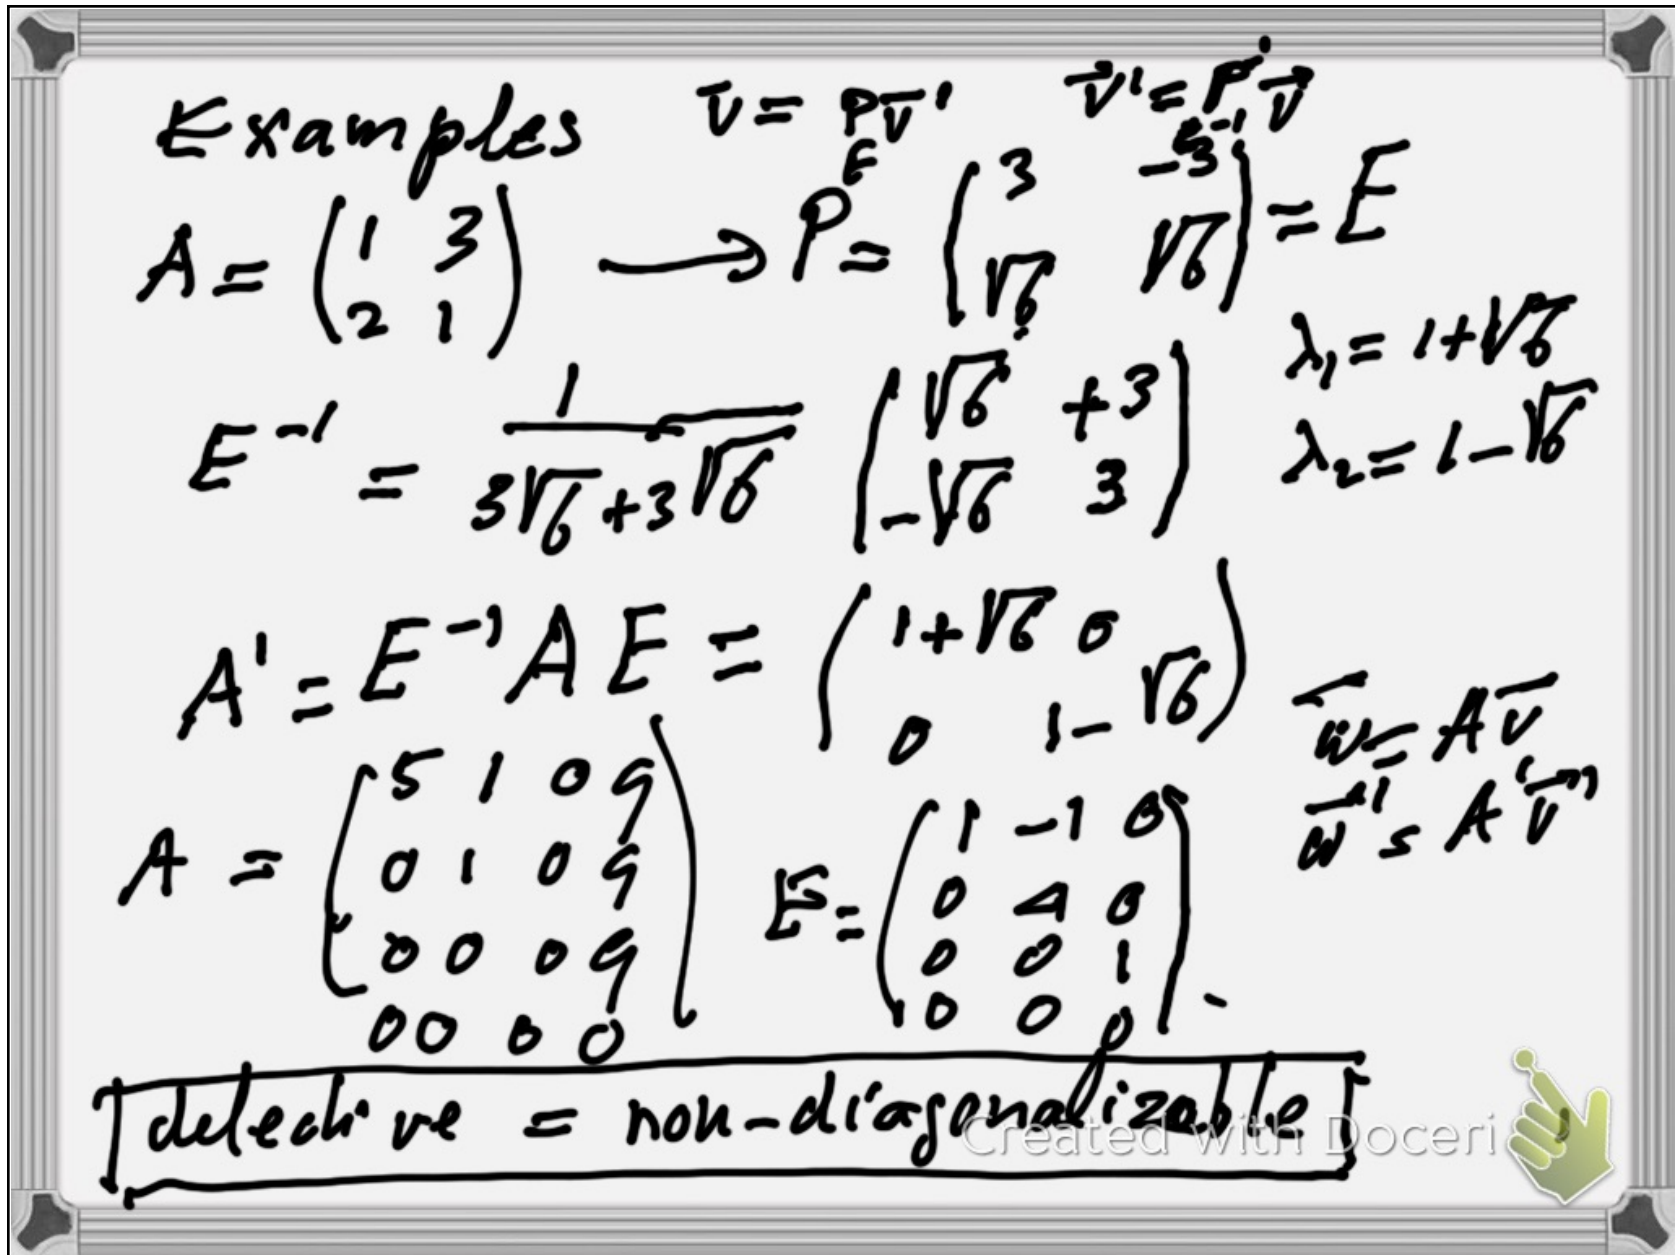 Examples v̄ = Pv̄' v⃗' = P⁻¹v⃗
E E⁻¹
A = (1 3 → P = (3 -3 = E
2 1) √6 √6)
λ₁ = 1+√6
E⁻¹ = 1 / (3√6+3√6) (√6 +3
-√6 3)
λ₂ = 1-√6
A' = E⁻¹ A E = (1+√6 0
0 1-√6)
w̄ = Av̄
w̄' = A'v̄'
A = (5 1 0 9
0 1 0 9
0 0 0 9
0 0 0 0)
E = (1 -1 0
0 4 0
0 0 1
0 0 0)
defective = non-diagonalizable
Created with Doceri